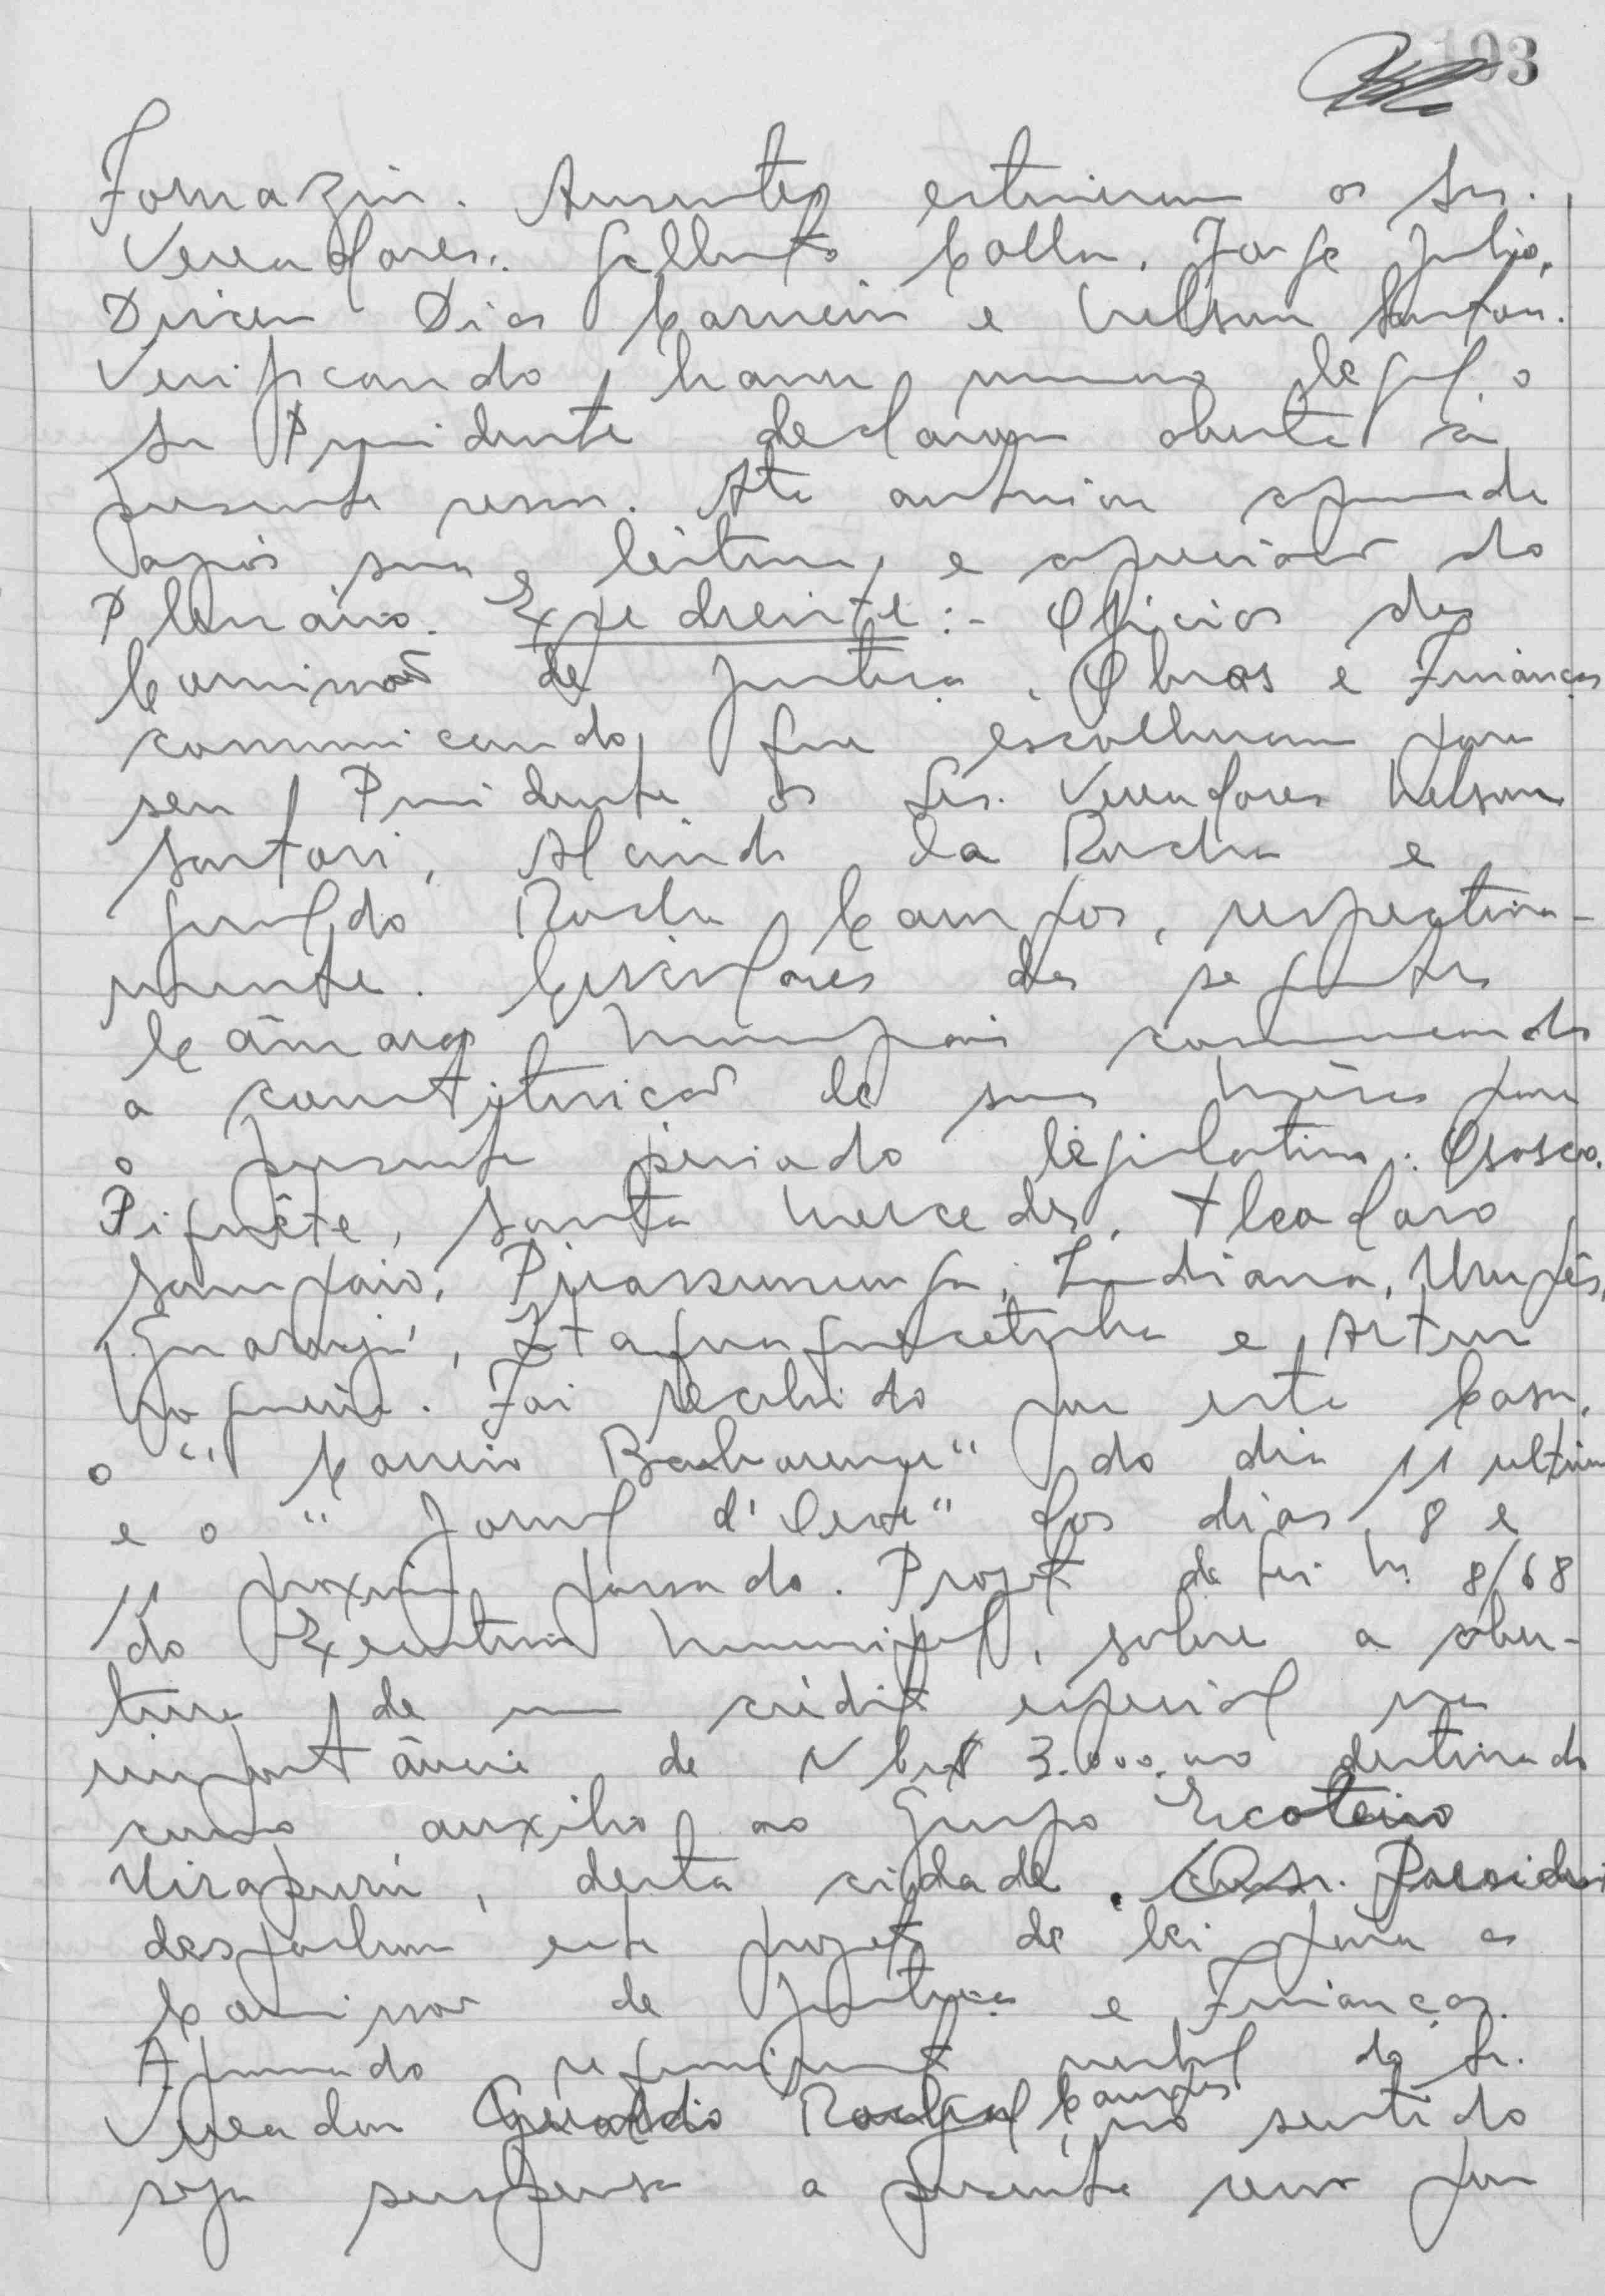 193
Fornazin. Ausentes estiveram os Srs.
Vereadores: Colla, Jorge Julio,
Dirceu Dias Carneiro e Nelson Sartori.
Verificando haver numero legal, o
Sr Presidente declarou aberta a
presente sessão. Ata anterior aprovada
após sua leitura e apreciação do
Plenário. Expediente:- Oficios das
Comissões de Justiça, Obras e Finanças
comunicando que escolheram para
seu Presidente os Srs. Vereadores Nelson
Sartori, Alcindo da Rocha e
Geraldo Rocha Campos, respectiva-
mente. Circulares das seguintes
Câmaras Municipais comunicando
a constituição de suas Mêsas para
o presente periodo legislativo: Osasco,
Piquête, Santa Mercedes, Teodoro
Sampaio, Pirassununga, Indiana, Urupês,
Guarujá, Itaquaquecetuba e Artur
Nogueira. Foi recebido por esta Casa,
o "Correio Barbarense" do dia 11 ultimo
e o "Jornal d'Oeste" dos dias 8 e
11 proximo passado. Projeto de Lei N. 8/68
do Executivo Municipal, sobre a aber-
tura de um crédito especial na
importância de NCr$ 3.000,00 destinado
como auxilio ao Grupo Escoteiro
Uirapurú, desta cidade. O Sr. Presidente
despachou este projeto de lei para as
Comissões de Justiça e Finanças.
Aprovado requerimento verbal do Sr.
Vereador Geraldo Rocha Campos, no sentido
seja suspensa a presente sessão por